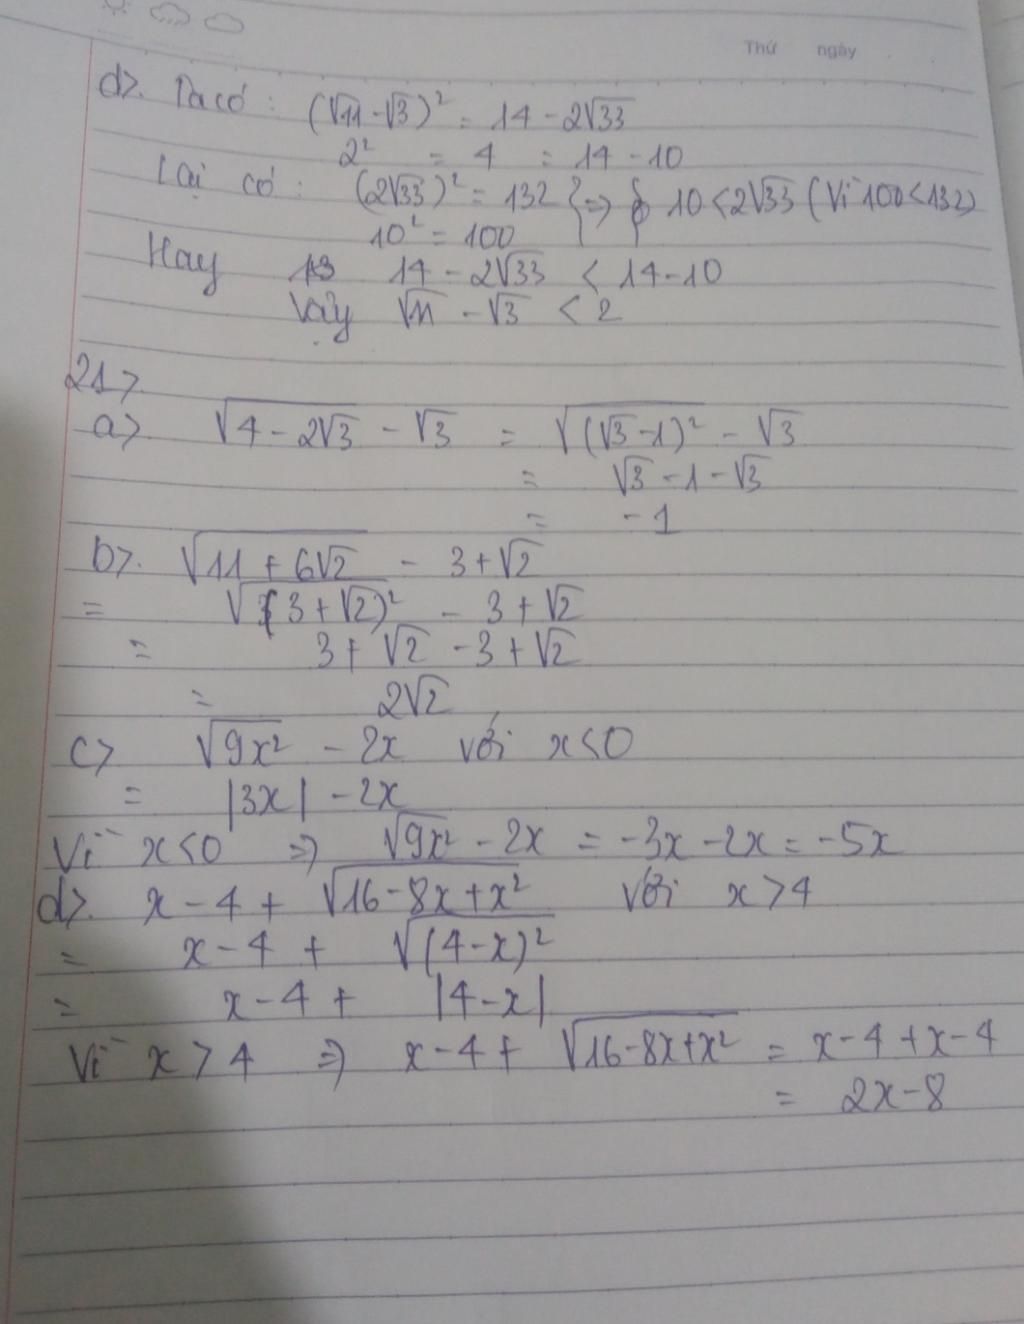 Thứ ngày
d>. Ta có : (√11 - √3)² = 14 - 2√33
2² = 4 = 14 - 10
Lại có : (2√33)² = 132 } => 10 < 2√33 (Vì 100 < 132)
10² = 100
Hay 14 - 2√33 < 14 - 10
Vậy √11 - √3 < 2
21>
a> √(4 - 2√3) - √3 = √((√3 - 1)²) - √3
= √3 - 1 - √3
= - 1
b>. √(11 + 6√2) - 3 + √2
= √((3 + √2)²) - 3 + √2
= 3 + √2 - 3 + √2
= 2√2
c> √(9x²) - 2x với x < 0
= |3x| - 2x
Vì x < 0 => √(9x²) - 2x = -3x - 2x = -5x
d>. x - 4 + √(16 - 8x + x²) với x > 4
= x - 4 + √((4 - x)²)
= x - 4 + |4 - x|
Vì x > 4 => x - 4 + √(16 - 8x + x²) = x - 4 + x - 4
= 2x - 8